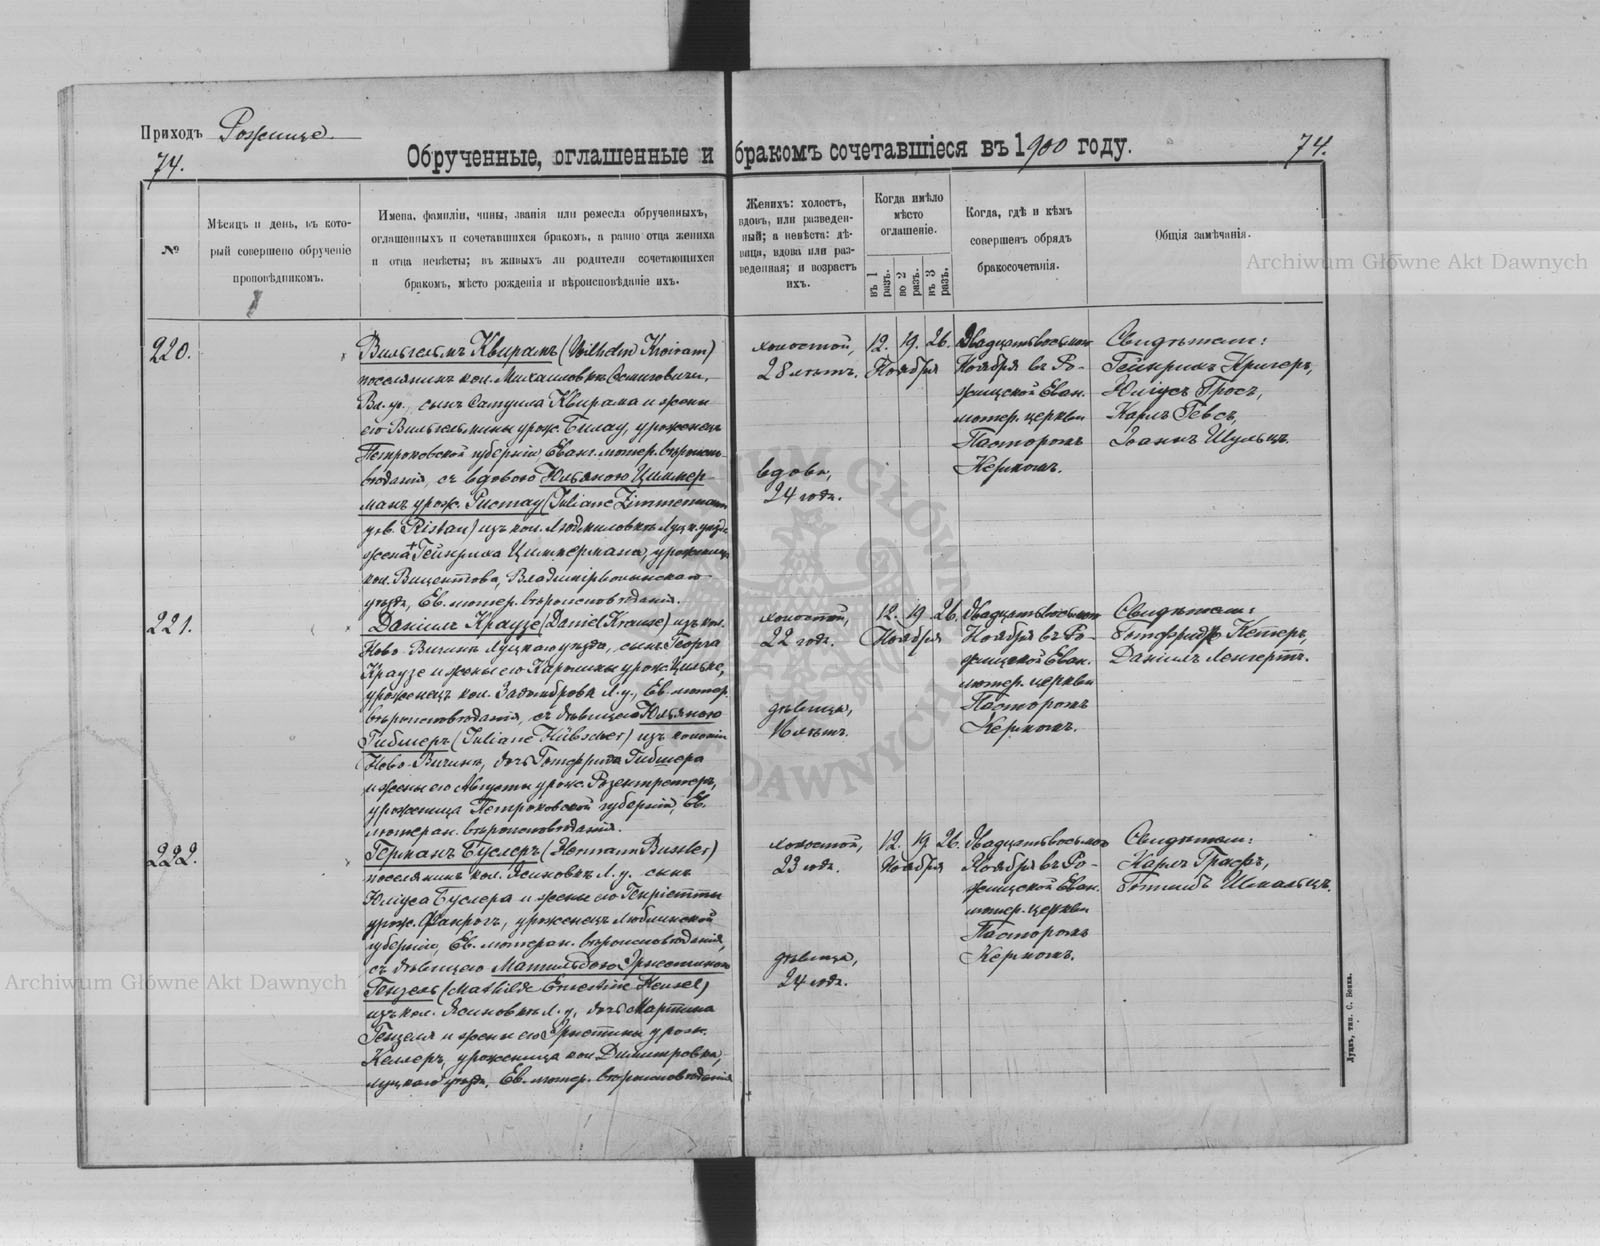 Приходъ Рожище.
74.
Обрученные, оглашенные и бракомъ сочетавшіеся въ 1900 году.
74.
№
Мѣсяцъ и день, въ кото-
рый совершено обрученіе
проповѣдникомъ.
Имена, фамиліи, чины, званія или ремесла обрученныхъ,
оглашенныхъ и сочетавшихся бракомъ, а равно отца жениха
и отца невѣсты; въ живыхъ ли родители сочетающихся
бракомъ, мѣсто рожденія и вѣроисповѣданіе ихъ.
Женихъ: холостъ,
вдовъ, или разведен-
ный; а невѣста: дѣ-
вица, вдова или раз-
веденная; и возрастъ
ихъ.
Когда имѣло
мѣсто
оглашеніе.
въ 1 разъ.
во 2 разъ.
въ 3 разъ.
Когда, гдѣ и кѣмъ
совершенъ обрядъ
бракосочетанія.
Общія замѣчанія.
220.
Вильгельмъ Квирамъ (Wilhelm Kwiram)
поселянинъ кол. Михайловки
Вл. у., сынъ Самуила Квирама и жены
его Вильгельмины урож. Билау, уроженецъ
Петроковской губерніи, Еванг. лютер. вѣроиспо-
вѣданія, съ вдовою Юльяною Циммер-
манъ урож. Ристау (Juliane Zimmermann
geb. Ristau) изъ кол. Людмиловки Луцк. уѣзда
жена † Гейнриха Циммермана, уроженица
кол. Вицентова, Владимірволынскаго
уѣзда, Ев. лютер. вѣроисповѣданія.
холостой,
28 лѣтъ.
вдова,
24 года.
12. 19. 26.
Ноября
Двадцатьвосьмого
Ноября въ Ро-
жищской Еван.
лютер. церкви
Пасторомъ
Кермомъ.
Свидѣтели:
Гейнрихъ Кригеръ,
Юліусъ Гросъ,
Карлъ Гевсъ,
Іоаннъ Шульцъ.
221.
Даніилъ Краузе (Daniel Krause) изъ кол.
Ново Вичинъ Луцкаго уѣзда, сынъ Георга
Краузе и жены его Каролины урож. Цильке,
уроженецъ кол. Задомбровка Л. у., Ев. лютер.
вѣроисповѣданія, съ дѣвицею Юльяною
Гибшеръ (Juliane Hübscher) изъ колоніи
Ново-Вичинъ, дочь Готфрида Гибшера
и жены его Августы урож. Розентретеръ,
уроженица Петроковской губерніи, Ев.
лютеран. вѣроисповѣданія.
холостой,
22 года.
дѣвица,
лѣтъ.
12. 19. 26.
Ноября
Двадцатьвосьмого
Ноября въ Ро-
жищской Еван.
лютер. церкви
Пасторомъ
Кермомъ.
Свидѣтели:
Готфридъ Кетлеръ,
Даніилъ Ленгертъ.
222.
Германъ Буслеръ (Hermann Bussler)
поселянинъ кол. Ясиновка Л. у. сынъ
Юліуса Буслера и жены его Генріетты
урож. Фанрогъ, уроженецъ Люблинской
губерніи, Ев. лютеран. вѣроисповѣданія,
съ дѣвицею Матильдою Эрнестиною
Гензель (Mathilde Ernestine Hensel)
изъ кол. Ясиновка Л. у., дочь Мартина
Гензеля и жены его Эрнстины урож.
Келлеръ, уроженица кол. Димитровка,
Луцкаго уѣзда, Ев. лютер. вѣроисповѣданія
холостой,
23 года.
дѣвица,
24 года.
12. 19. 26.
Ноября
Двадцатьвосьмого
Ноября въ Ро-
жищской Еван.
лютер. церкви
Пасторомъ
Кермомъ.
Свидѣтели:
Карлъ Графъ,
Готлибъ Шмальцъ.
Луцкъ, тип. С. Бокка.
Archiwum Główne Akt Dawnych
Archiwum Główne Akt Dawnych